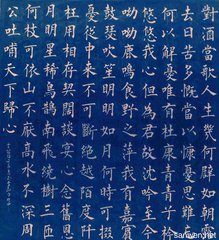 對酒當歌人生幾何譬如朝露
去日苦多慨當以慷憂思難忘
何以解憂唯有杜康青青子衿
悠悠我心但為君故沉吟至今
呦呦鹿鳴食野之苹我有嘉賓
鼓瑟吹笙明明如月何時可掇
憂從中來不可斷絕越陌度阡
枉用相存契闊談宴心念舊恩
月明星稀烏鵲南飛繞樹三匝
何枝可依山不厭高水不深周
公吐哺天下歸心
sanwen.net